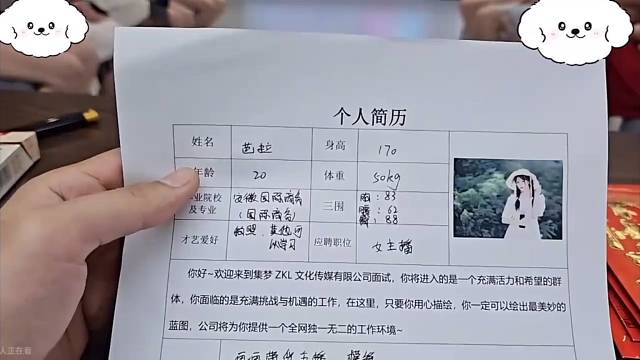 个人简历
姓名 芭拉 身高 170
年龄 20 体重 50kg
毕业院校及专业 安徽国际商务(国际商务) 三围 胸:83 腰:62 臀:88
才艺爱好 应聘职位 女主播
你好~欢迎来到集梦 ZKL 文化传媒有限公司面试,你将进入的是一个充满活力和希望的群
体,你面临的是充满挑战与机遇的工作,在这里,只要你用心描绘,你一定可以绘出最美妙的
蓝图,公司将为你提供一个全网独一无二的工作环境~
人正在看